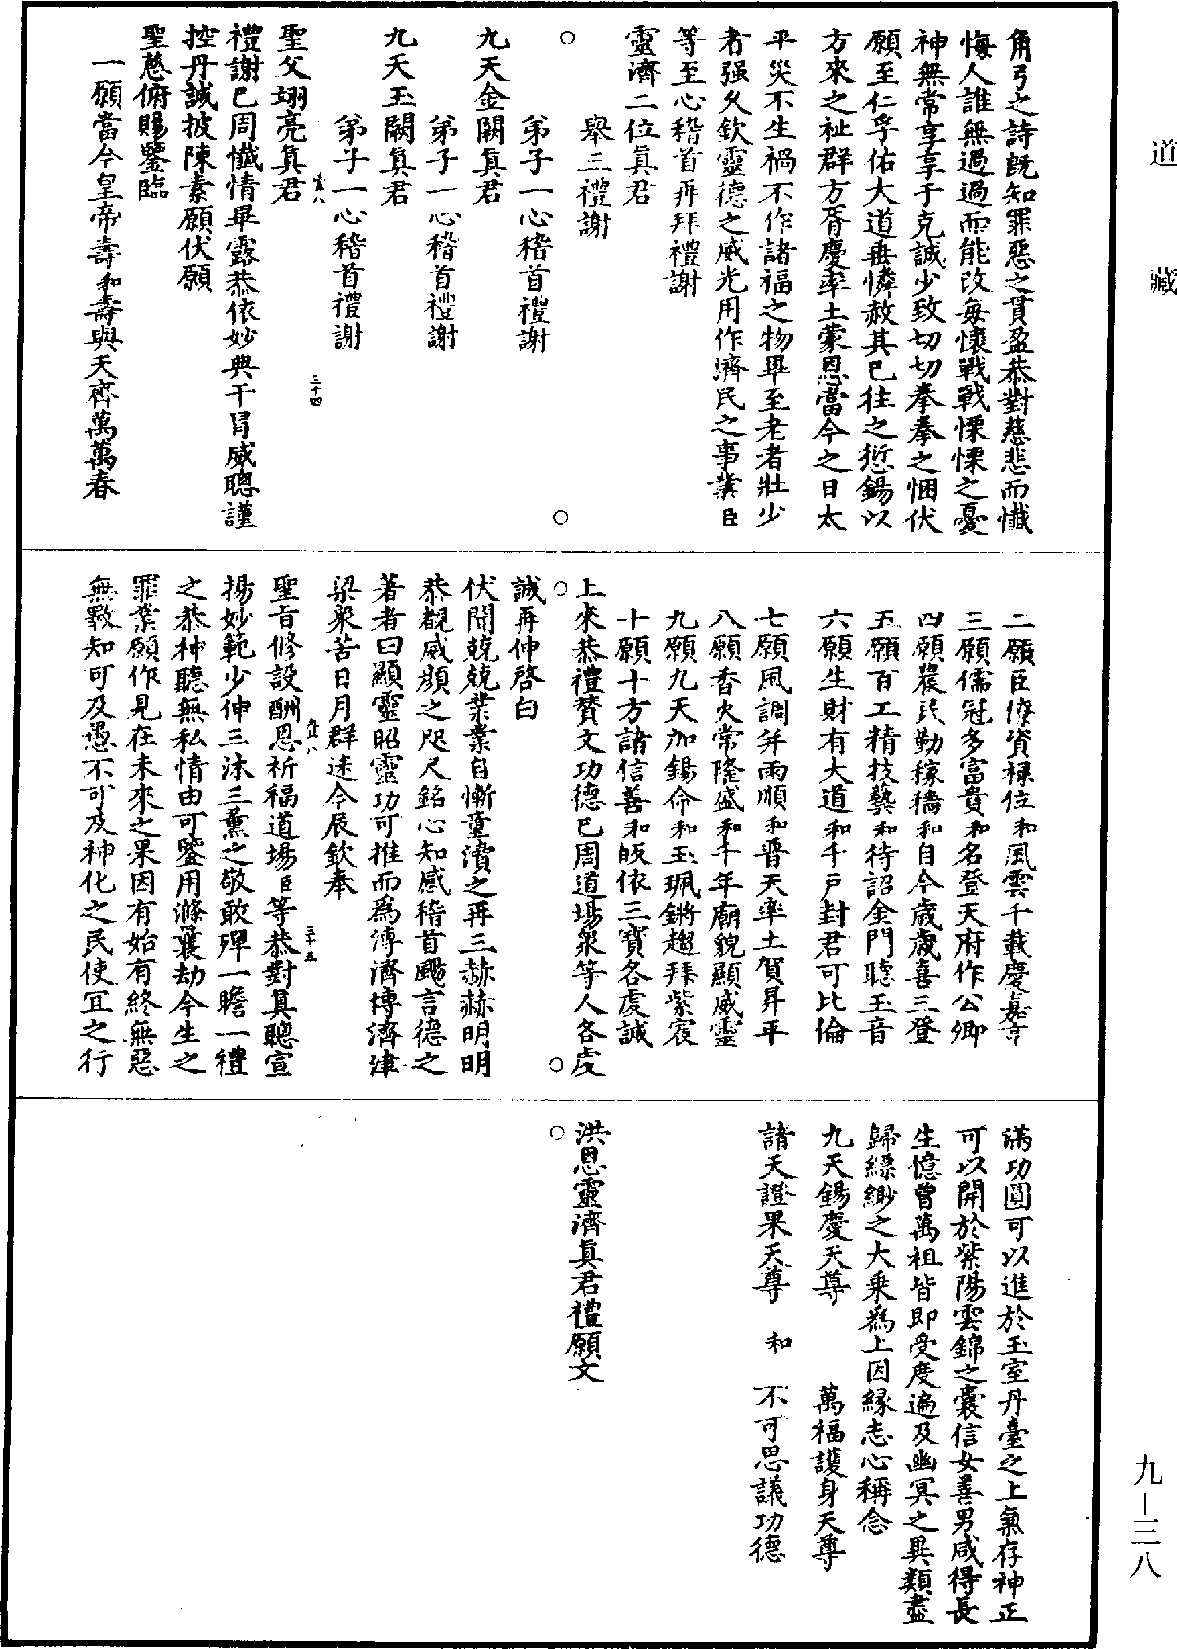 道藏
角弓之詩既知罪惡之貫盈恭對慈悲而懺
悔人誰無過過而能改每懷戰戰慄慄之憂
神無常享享于克誠少致切切拳拳之悃伏
願至仁孚佑大道垂憐赦其已往之愆錫以
方來之祉群方胥慶率土蒙恩當今之日太
平災不生禍不作諸福之物畢至老者壯少
者强久欽靈德之威光用作濟民之事業臣
等至心稽首再拜禮謝
靈濟二位真君
舉三禮謝
○ ○
弟子一心稽首禮謝
九天金闕真君
弟子一心稽首禮謝
九天玉闕真君
弟子一心稽首禮謝
聖父翊亮真君
三十四
禮謝已周懺情畢露恭依妙典干冒威聰謹
控丹誠披陳素願伏願
聖慈俯賜鑒臨
一願當今皇帝壽和壽與天齊萬萬春
二願臣僚資祿位和風雲千載慶嘉亨
三願儒冠多富貴和名登天府作公卿
四願農民勤稼穡和自今歲歲喜三登
五願百工精技藝和待詔金門聽玉音
六願生財有大道和千戶封君可比倫
七願風調并雨順和普天率土賀昇平
八願香火常隆盛和千年廟貌顯威靈
九願九天加錫命和玉珮鏘趨拜紫宸
十願十方諸信善和皈依三寶各虔誠
上來恭禮贊文功德已周道場眾等人各虔
○ ○
誠再伸啓白
伏聞兢兢業業自慚童瀆之再三赫赫明明
恭覩威顏之咫尺銘心知感稽首颺言德之
著者曰顯靈昭靈功可推而為溥濟博濟津
梁衆苦日月群迷今辰欽奉
三十五
聖旨修設酬恩祈福道場臣等恭對真聰宣
揚妙範少伸三沐三薰之敬敢殫一瞻一禮
之恭神聽無私情由可鑒用滌曩劫今生之
罪業願作見在未來之果因有始有終無惡
無斁知可及愚不可及神化之民使宜之行
滿功圓可以進於玉室丹臺之上氣存神正
可以開於紫陽雲錦之囊信女善男咸得長
生憶曾萬祖皆即受度遍及幽冥之異類盡
歸縹緲之大乘為上因緣志心稱念
九天錫慶天尊 萬福護身天尊
諸天證果天尊 和 不可思議功德
○
洪恩靈濟真君禮願文
九—三八